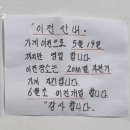 "이전안내"
가게 이전으로 5월 19일
까지만 영업 합니다.
이전장소는 20m 옆 부천기
가게 자리입니다
6월초 이전개업 합니다
"감사 합니다"